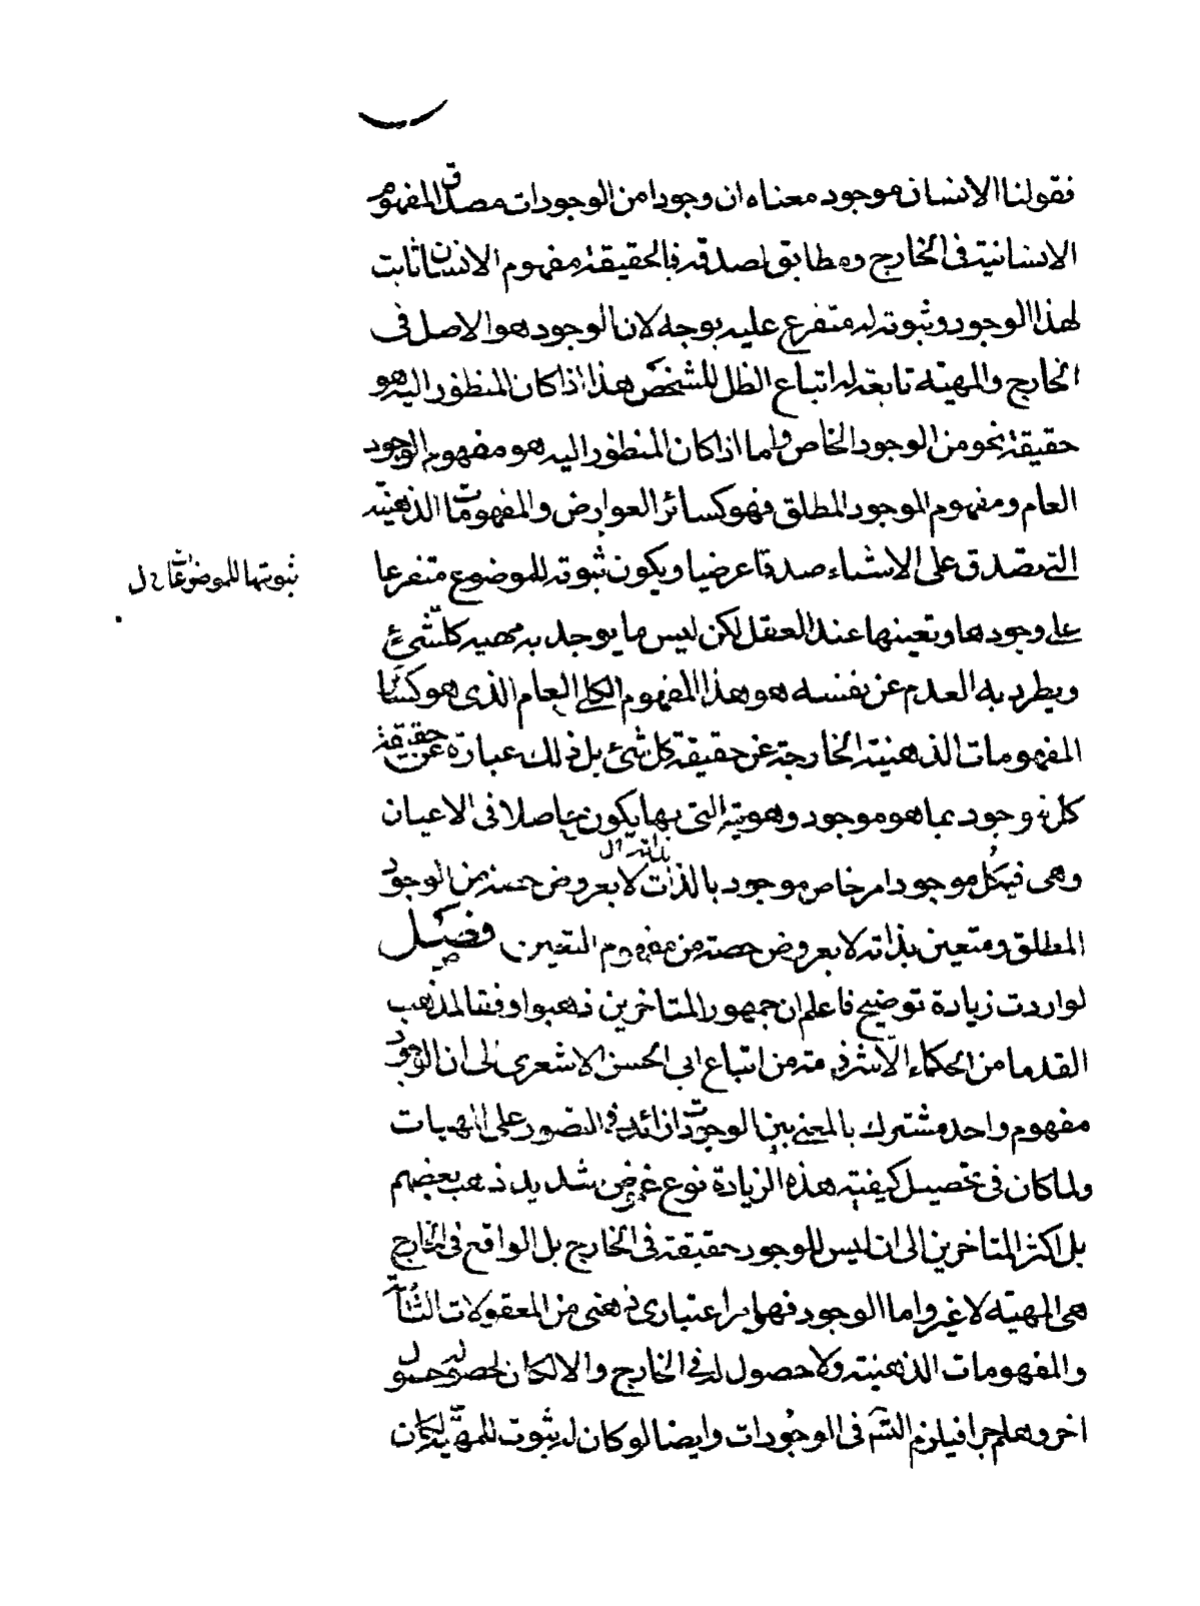 فقولنا الانسان موجود معناه ان وجودا من الوجودات مصداق المفهوم
الانسانية في الخارج ومطابق لصدقه فبالحقيقة مفهوم الانسان ثابت
لهذا الوجود وثبوته له متفرع عليه بوجه لان الوجود هو الاصل في
الخارج والمهية تابعة له اتباع الظل للشخص هذا اذا كان المنظور اليه هو
حقيقة نحو من الوجود الخاص واما اذا كان المنظور اليه هو مفهوم الوجود
العام ومفهوم الموجود المطلق فهو كسائر العوارض والمفهومات الذهنية
التي تصدق على الاشياء صدقا عرضيا ويكون ثبوته للموضوع متفرعا
ثبوتها للموضوعات ل
على وجودها وتعينها عند العقل لكن ليس ما يوجد به مهية كل شئ
ويطرد به العدم عن نفسه هو هذا المفهوم الكلي العام الذي هو كسائر
المفهومات الذهنية الخارجة عن حقيقة كل شئ بل ذلك عبارة عن حقيقة
كل وجود بما هو موجود وهويته التي بها يكون حاصلا في الاعيان
بذاته ل
وهي في كل موجود امر خاص موجود بالذات لا بعروض حصة من الوجود
المطلق ومتعين بذاته لا بعروض حصة من مفهوم التعين فصل
لو اردت زيادة توضيح فاعلم ان جمهور المتاخرين ذهبوا وفقا لمذهب
القدما من الحكماء الا شرذمة من اتباع ابي الحسن الاشعري الى ان الوجود
مفهوم واحد مشترك بالمعنى بين الوجودات زائد في التصور على المهيات
ولما كان في تحصيل كيفية هذه الزيادة نوع غموض شديد ذهب بعضهم
بل اكثر المتاخرين الى ان ليس للوجود حقيقة في الخارج بل الواقع في الخارج
هي المهية لا غير واما الوجود فهو امر اعتباري ذهني من المعقولات الثانية
والمفهومات الذهنية ولا حصول له في الخارج والا لكان لحصوله حصول
اخر وهلم جرا فيلزم التس في الوجودات وايضا لو كان له ثبوت للمهية لكان